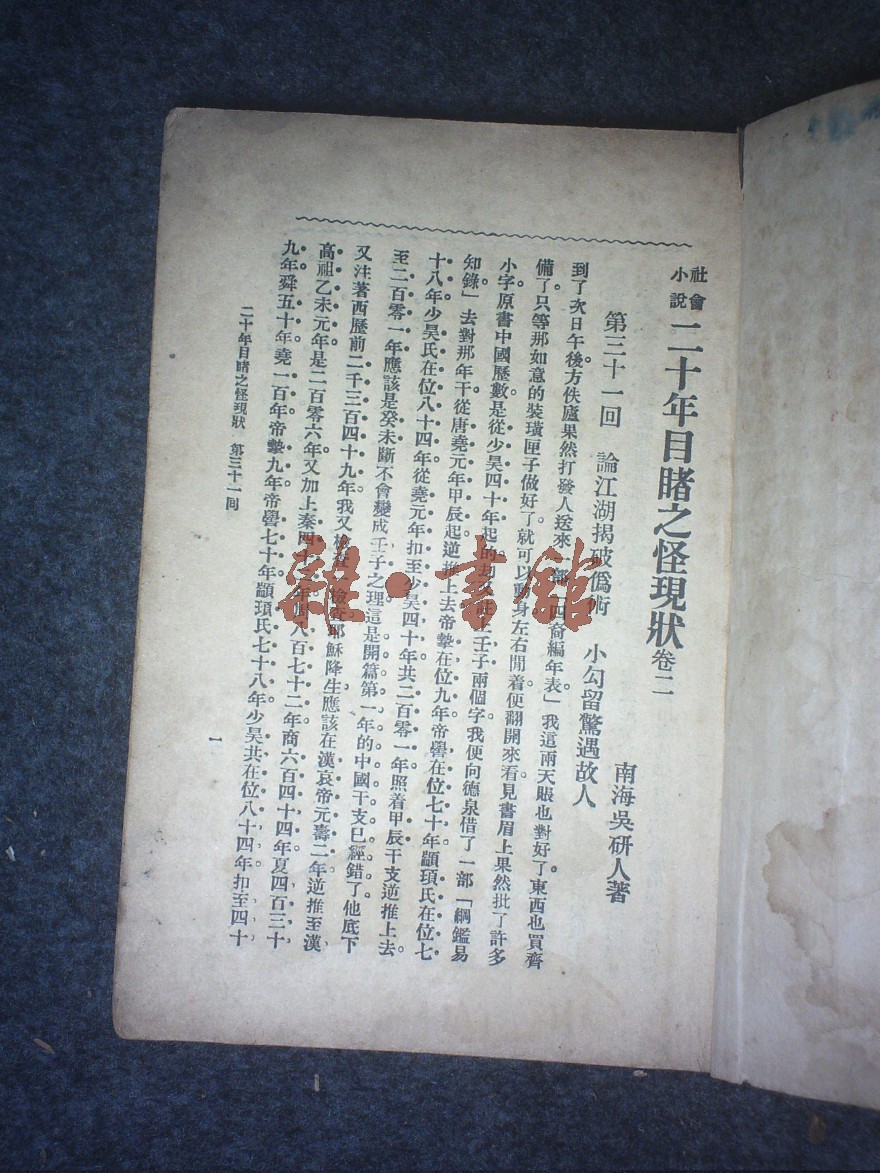 社會小說 二十年目睹之怪現狀 卷二
南海吳硏人著
第三十一回　論江湖揭破僞術　小勾留驚遇故人
到了次日午後。方佚廬果然打發人送來一部「四裔編年表」我這兩天賬也對好了。東西也買齊
備了。只等那如意的裝璜匣子做好了。就可以動身左右閒着。便翻開來看見書眉上果然批了許多
小字。原書中國歷數。是從少昊四十年起的。却又註上壬子兩個字我便向德泉借了一部「綱鑑易
知錄」去對那年干從唐堯元年甲辰起逆推上去帝摯在位九年帝嚳在位七十年顓頊氏在位七
十八年少昊氏在位八十四年從堯元年扣至少昊四十年共二百零一年照着甲辰干支逆推上去。
至二百零一年應該是癸未斷不會變成壬子之理這是開篇第一年的中國干支已經錯了他底下
又注著西歷前二千三百四十九年我又檢查一檢查耶穌降生應該在漢哀帝元壽二年逆推至漢
高祖乙未元年是二百零六年又加上秦四十 年周八百七十二年商六百四十四年夏四百三十
九年舜五十年堯一百年帝摯九年帝嚳七十年顓頊氏七十八年少昊共在位八十四年扣至四十
二十年目睹之怪現狀　第三十一回
一
雜·書館